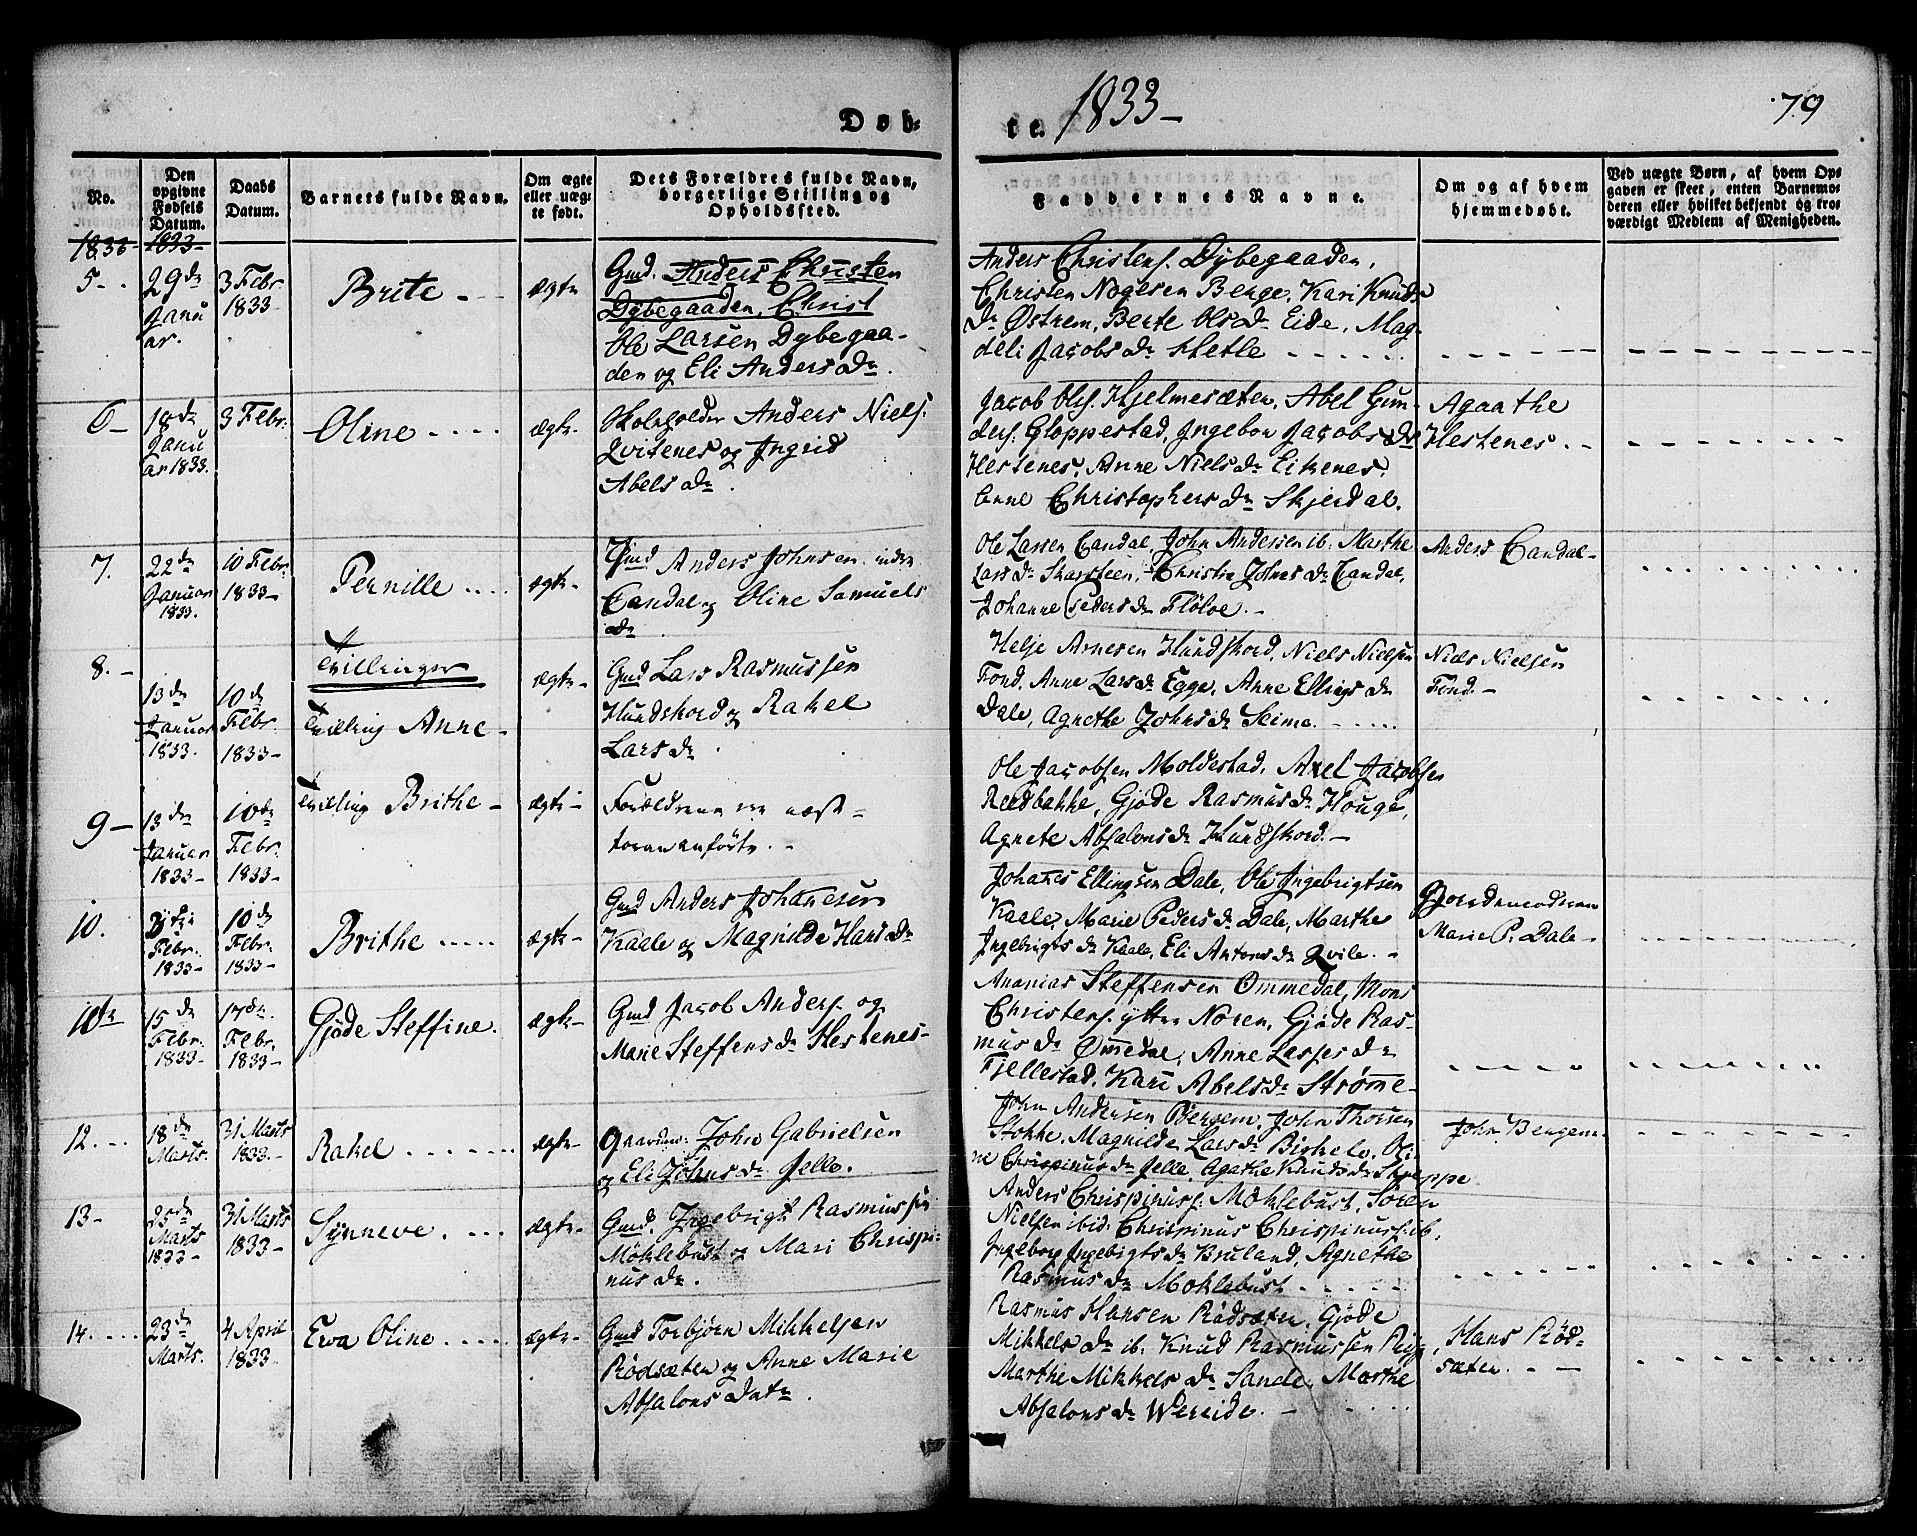 Døb-
te. 1833-
79
No.
Den opgivne Fødsels Datum.
Daabs Datum.
Barnets fulde Navn.
Om ægte eller uægte født.
Dets Forældres fulde Navn, borgerlige Stilling og Opholdssted.
Faddernes Navne.
Om og af hvem hjemmedøbt.
Ved uægte Børn, af hvem Opgaven er skeet, enten Barnemoderen eller hvilket bekjendt og troværdigt Medlem af Menigheden.
1833- 1833-
5-
29de
Janu
ar.
3 Febr
1833
Brite
ægte
Gmd. Anders Christen
Dybegaaden, Christ
Ole Larsen Dybegaa-
den og Eli Andersdr.
Anders Christens. Dybegaaden,
Christen Nogesen Berge, Kari Knuds
dr Østrem, Berte Olsdr Eide, Mag-
deli Jacobsdr Hetle
6-
18de
Janu
ar 1833.
3 Febr.
Oline
ægte.
Skoleholder Anders Niels.
Qvitenes og Ingrid
Abelsdr.
Jacob Ols. Hjelmesæten, Abel Gun-
ders. Gloppestad, Ingebor Jacobsdr
Hestenes, Anne Nielsdr Eikenes,
Anne Christophersdr Skjerdal.
Agaathe
Hestenes.
7.
22de
Januar
1833.
10 Febr.
1833-
Pernille
ægte-
Gmd Anders Johnsen indre
Candal og Oline Samuels
dr
Ole Larsen Candal, John Andersen ib. Marthe
Larsdr Skarsteen, Christie Johnsdr Candal,
Johanne Pedersdr Fløloe.-
Anders Candal-
8.-
13de
Januar
1833.
10de
Febr.
1833-
Tvillinger
Tvilling Anne-
ægte-
Gmd Lars Rasmussen
Hundskord og Rakel
Larsdr
Helje Arnesen Hundskord, Niels Nielsen
Fond, Anne Larsdr Egge, Anne Ellingsdr
Dale, Agnethe Johnsdr Seime.
Niels Nielsen
Fond.-
9-
13de
Januar
1833-
10de
Febr.
1833-
Tvilling Brithe-
ægte-
Forældrene ere næst-
forananførte.-
Ole Jacobsen Moldestad, Axel Jacobsen
Reedbakke, Gjøde Rasmusdr Houge,
Agnete Absalonsdr Hundskord.-
10.
Febr.
1833-
10de
Febr.
1833-
Brithe
ægte-
Gmd Anders Johanesen
Kaale og Magnilde Hansdr
Johanes Ellingsen Dale, Ole Ingebrigtsen
Kaale, Marie Pedersdr Dale, Marthe
Ingebrigtsdr Kaale, Eli Antonsdr Qvile.-
Gjordemoderen
Marie P. Dale-
15de
Febr.
1833-
17de
Febr.
1833-
Gjøde Steffine.
ægte-
Gmd Jacob Anders. og
Marie Steffensdr Hestenes-
Ananias Steffensen Ommedal, Mons
Christens. ytre Noren, Gjøde Ras-
musdr Ommedal, Anne Lassesdr
Fjellestad, Kari Abelsdr Strømme-
12.
18de
Marts.
31 Marts
1833.-
Rakel
ægte-
Gaardm. John Gabrielsen
og Eli Johnsdr Jelle.
John Andersen Bergem, John Thorsen
Stokke, Magnilde Larsdr Birkelo, Oli-
ne Chrispinusdr Jelle, Agathe Knudsdr Skreppe
John Bergem
13-
Marts
1833-
31 Marts
1833-
Synneve.
ægte-
Gmd. Ingebrigt Rasmussen
Møhlebust og Mari Chrispi-
nusdr.
Anders Chrispinus. Møhlebust, Søren
Nielsen ibid. Chrispinus Chrispinus. ib,
Ingeborg Ingebrigtsdr Bruland, Agnethe
Rasmusdr Møhlebust
14.
23de
Marts.
4 April
1833-
Ewa Oline
ægte-
Gmd Torbjørn Mikkelsen
Rødsæten og Anne Marie
Absalons Datr.
Rasmus Hansen Rødsæten, Gjøde
Mikkelsdr ib. Knud Rasmussen Ryg,
Marthe Mikkelsdr Sande, Marthe
Absalonsdr Wereide.-
Hans Rød-
sæten.-